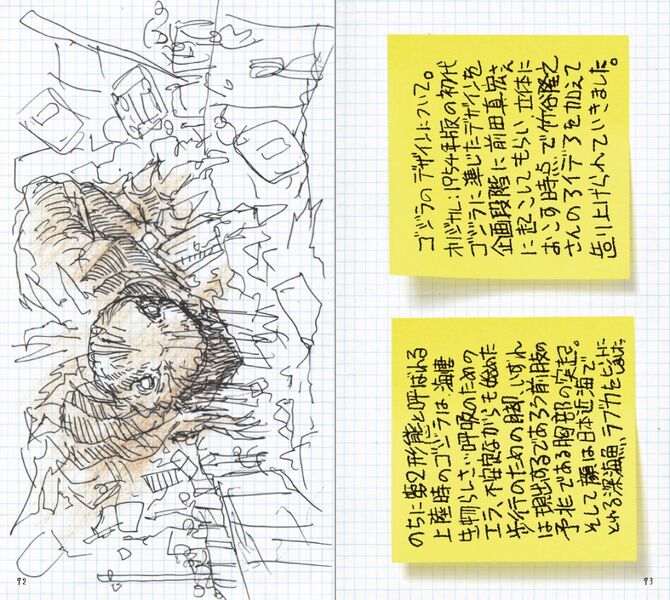 ゴジラのデザインについて。
オリジナル:1954年版の初代
ゴジラに準じたデザインを
企画段階に前田真宏さん
に起こしてもらい、立体に
おこす時点で竹谷隆之
さんのアイデアを加えて
造り上げられていきました。
のちに第2形態と呼ばれる
上陸時のゴジラは海棲
生物らしさ、呼吸のための
エラ、不安定ながらも始めた
歩行のための脚、いずれ
は現出するであろう前肢の
予兆である胸部の突起。
そして顔は日本近海で
とれる深海魚、ラブカをヒントに
しました。
92
93